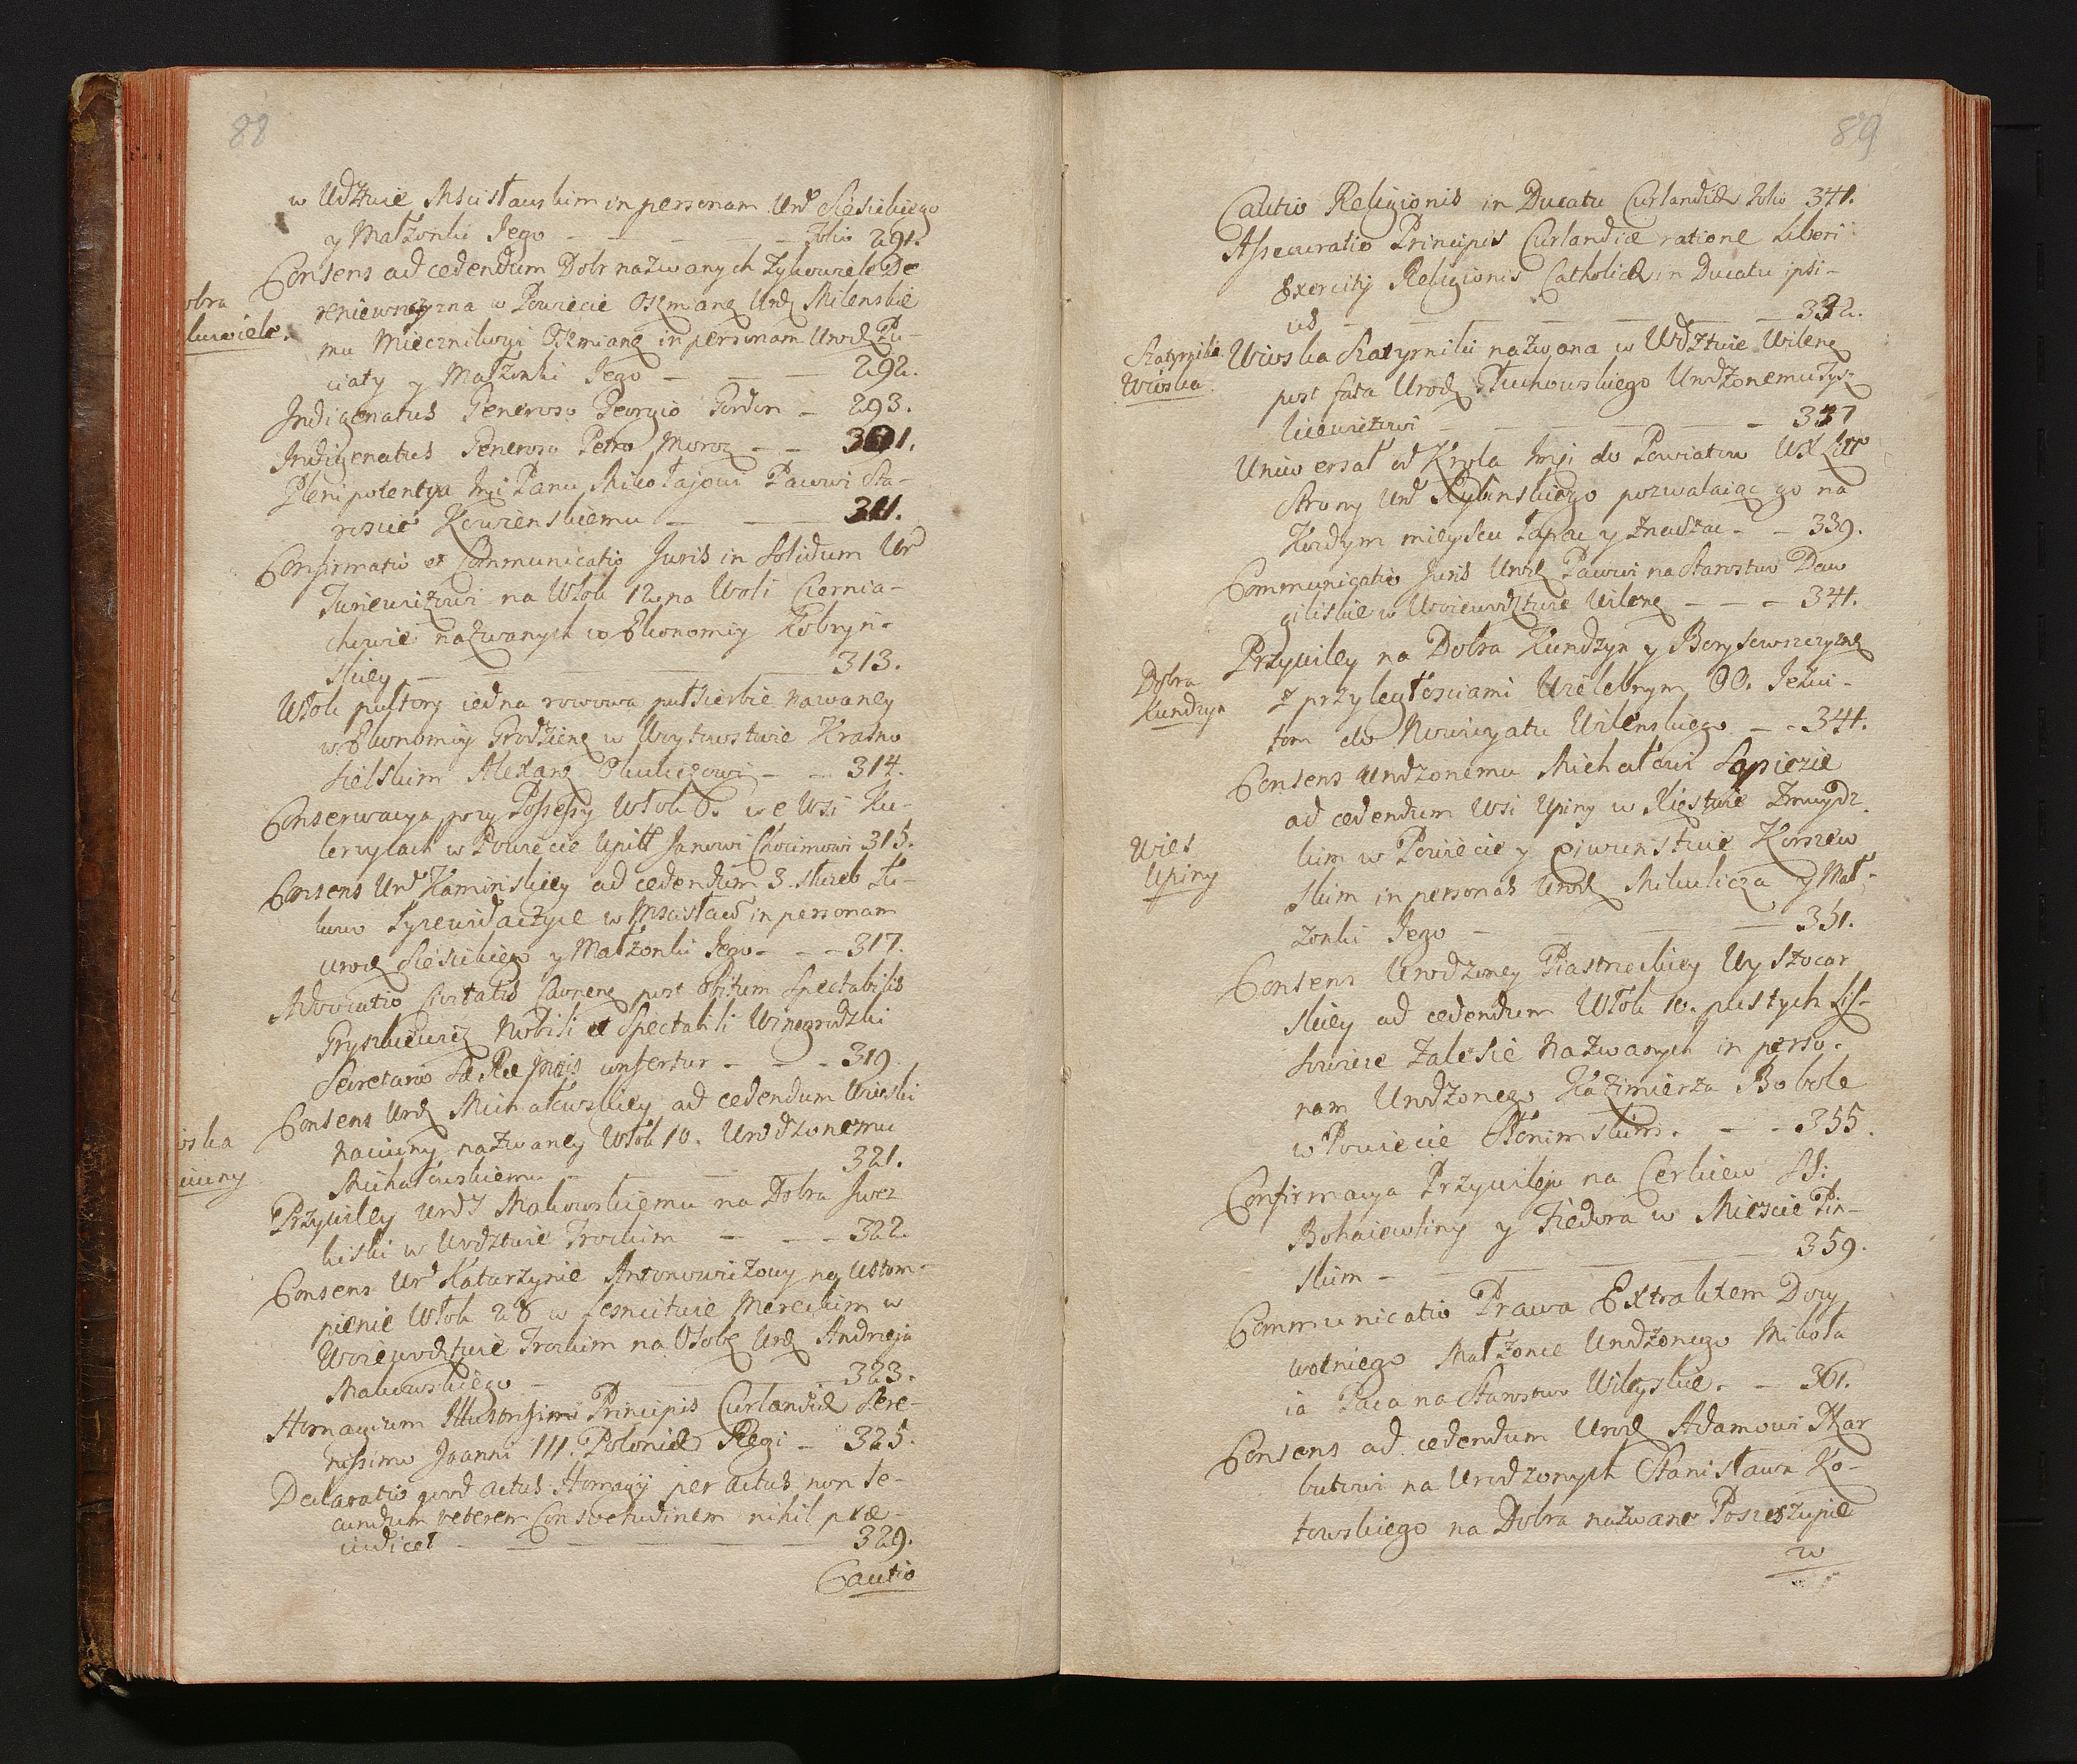 88
w Wdztwie Mscisławskim in personam Urd Siesickiego
y Małżonki Jego — — — folio 291.
Consens ad cedendum Dobr nazwanych Zyłowiele De
reniewszczyzna w Powiecie Oszmianę Urdz Milenskie
mu Miecznikowi Oszmianę in personam Urodz Pu-
ciaty y Małżonki Jego — — — 292.
obra
luwiele.
Indigenatus Generoso Georgio Gordon — 293.
Indigenatus Generoso Petro Moroz — — 301.
Plenipotentya Jmci Panu Mikołajowi Pacowi Sta-
roscie Kowienskiemu — — 311.
Confirmatio et Communicatio Juris in Solidum Ur
Juriewiczowi na Włok 12 na Woli Czernia-
chowie nazwanych w Ekonomiy Kobryń-
skiey — — — 313.
Włok pułtory iedna rowowa pułsierbie nazwaney
w Ekonomiy Grodzienę w Woytowstwie Krasno
sielskim Alexand — — 314.
Conserwacya przy Possessy Włok 6. we Wsi Ku-
lerzylach w Powiecie Upitt Janowi Chocimowi 315.
Consens Urd Kaminskiey ad cedendum 3. słuzeb Su-
w Mscisław in personam
urodz Siesickiego y Małżonki Jego — — 317.
Advocatio Civitatis Caunenę post obitum Spectabilis
Gryszkiewicz Nobili et Spectabili Winogrodzki
Secretario Sæ Ræ Mtis confertur — — 319.
Consens Urdz Michałowskiey ad cedendum Wioski
Naciuny nazwaney Włok 10. Urodzonemu
Michałowskiemu — — — 321.
oska
ciuny
Przywiley Urdz Makowskiemu na Dobra Jwez
kiski w Wodztwie Trockim — — — 322.
Consens Ur Katarzynie Antonowiczowy na Ustom-
pienie Włok 28 w Lesnictwie Mereckim w
Woiewodztwie Trockim na Osobę Urdz Andrzeja
Makowskiego — — — 323.
Homagium Illustrissimi Principis Curlandiæ Sere-
nissimo Joanni III. Poloniæ Regi — 325.
Declaratio quod actus Homagij per actus non se-
cundum veterem Consvetudinem nihil præ-
iudicet — — — — 329.
Cautio
89
Cautio Religionis in Ducatu Curlandiæ folio 341.
Assecuratio Principis Curlandiæ ratione Liberi
Exercitij Religionis Catholicæ in Ducatu ipsi-
us — — — — 332.
Szatyrniki
Wioska
Wioska Szatyrniki nazwana w Wdztwie Wilenę
post fata Urodz Głuchowskiego Urodzonemu Tysz
kiewiczowi — — — — 337
Uniwersał od Krola Jmci do Powiatow WX Litt
Strony Urd Rybinskiego pozwalaiąc go na
Kozdym mieyscu łapac y znaszac — — 339.
Communicatio Juris Urodz Pacowi na Starostwo Daw
giliskie w Woiewodztwie Wilenę — — — 341.
Dobra
Kundzyn
Przywiley na Dobra Kundzyn y Borysowszczyznę
z przyległosciami Wielebnym OO. Jezui-
tom do Nowicyatu Wilenskiego — — 341.
Consens Urodzonemu Michałowi Sapiezie
ad cedendum Wsi Upiny w Xięstwie Zmuydz
kim w Powiecie y Ciwunstwie Korszew
skim in personas Urodz Mikulicza y Mał-
zonki Jego — — — 351.
Wies
Upiny
Consens Urodzoney Piastrzeckiey Wysztocar
skiey ad cedendum Włok 10. pustych Lis-
sowicie Zalesie Nazwanych in perso-
nam Urodzonego Kazimierza Bobole
w Powiecie Słonimskim. — — 355.
Confirmacya Przywileju na Cerkiew SS:
Bohaiewliny y Fiedora w Miescie Pin-
skim — — — 359.
Communicatio Prawa Extraktem Dozy
wotniego Małzonce Urodzonego Mikoła
ia Paca na Starostwo Wileyskie. — 361.
Consens ad cedendum Urodz Adamowi Skar
butowi na Urodzonych Stanisława Ko-
towskiego na Dobra nazwane Poszeszupie
w